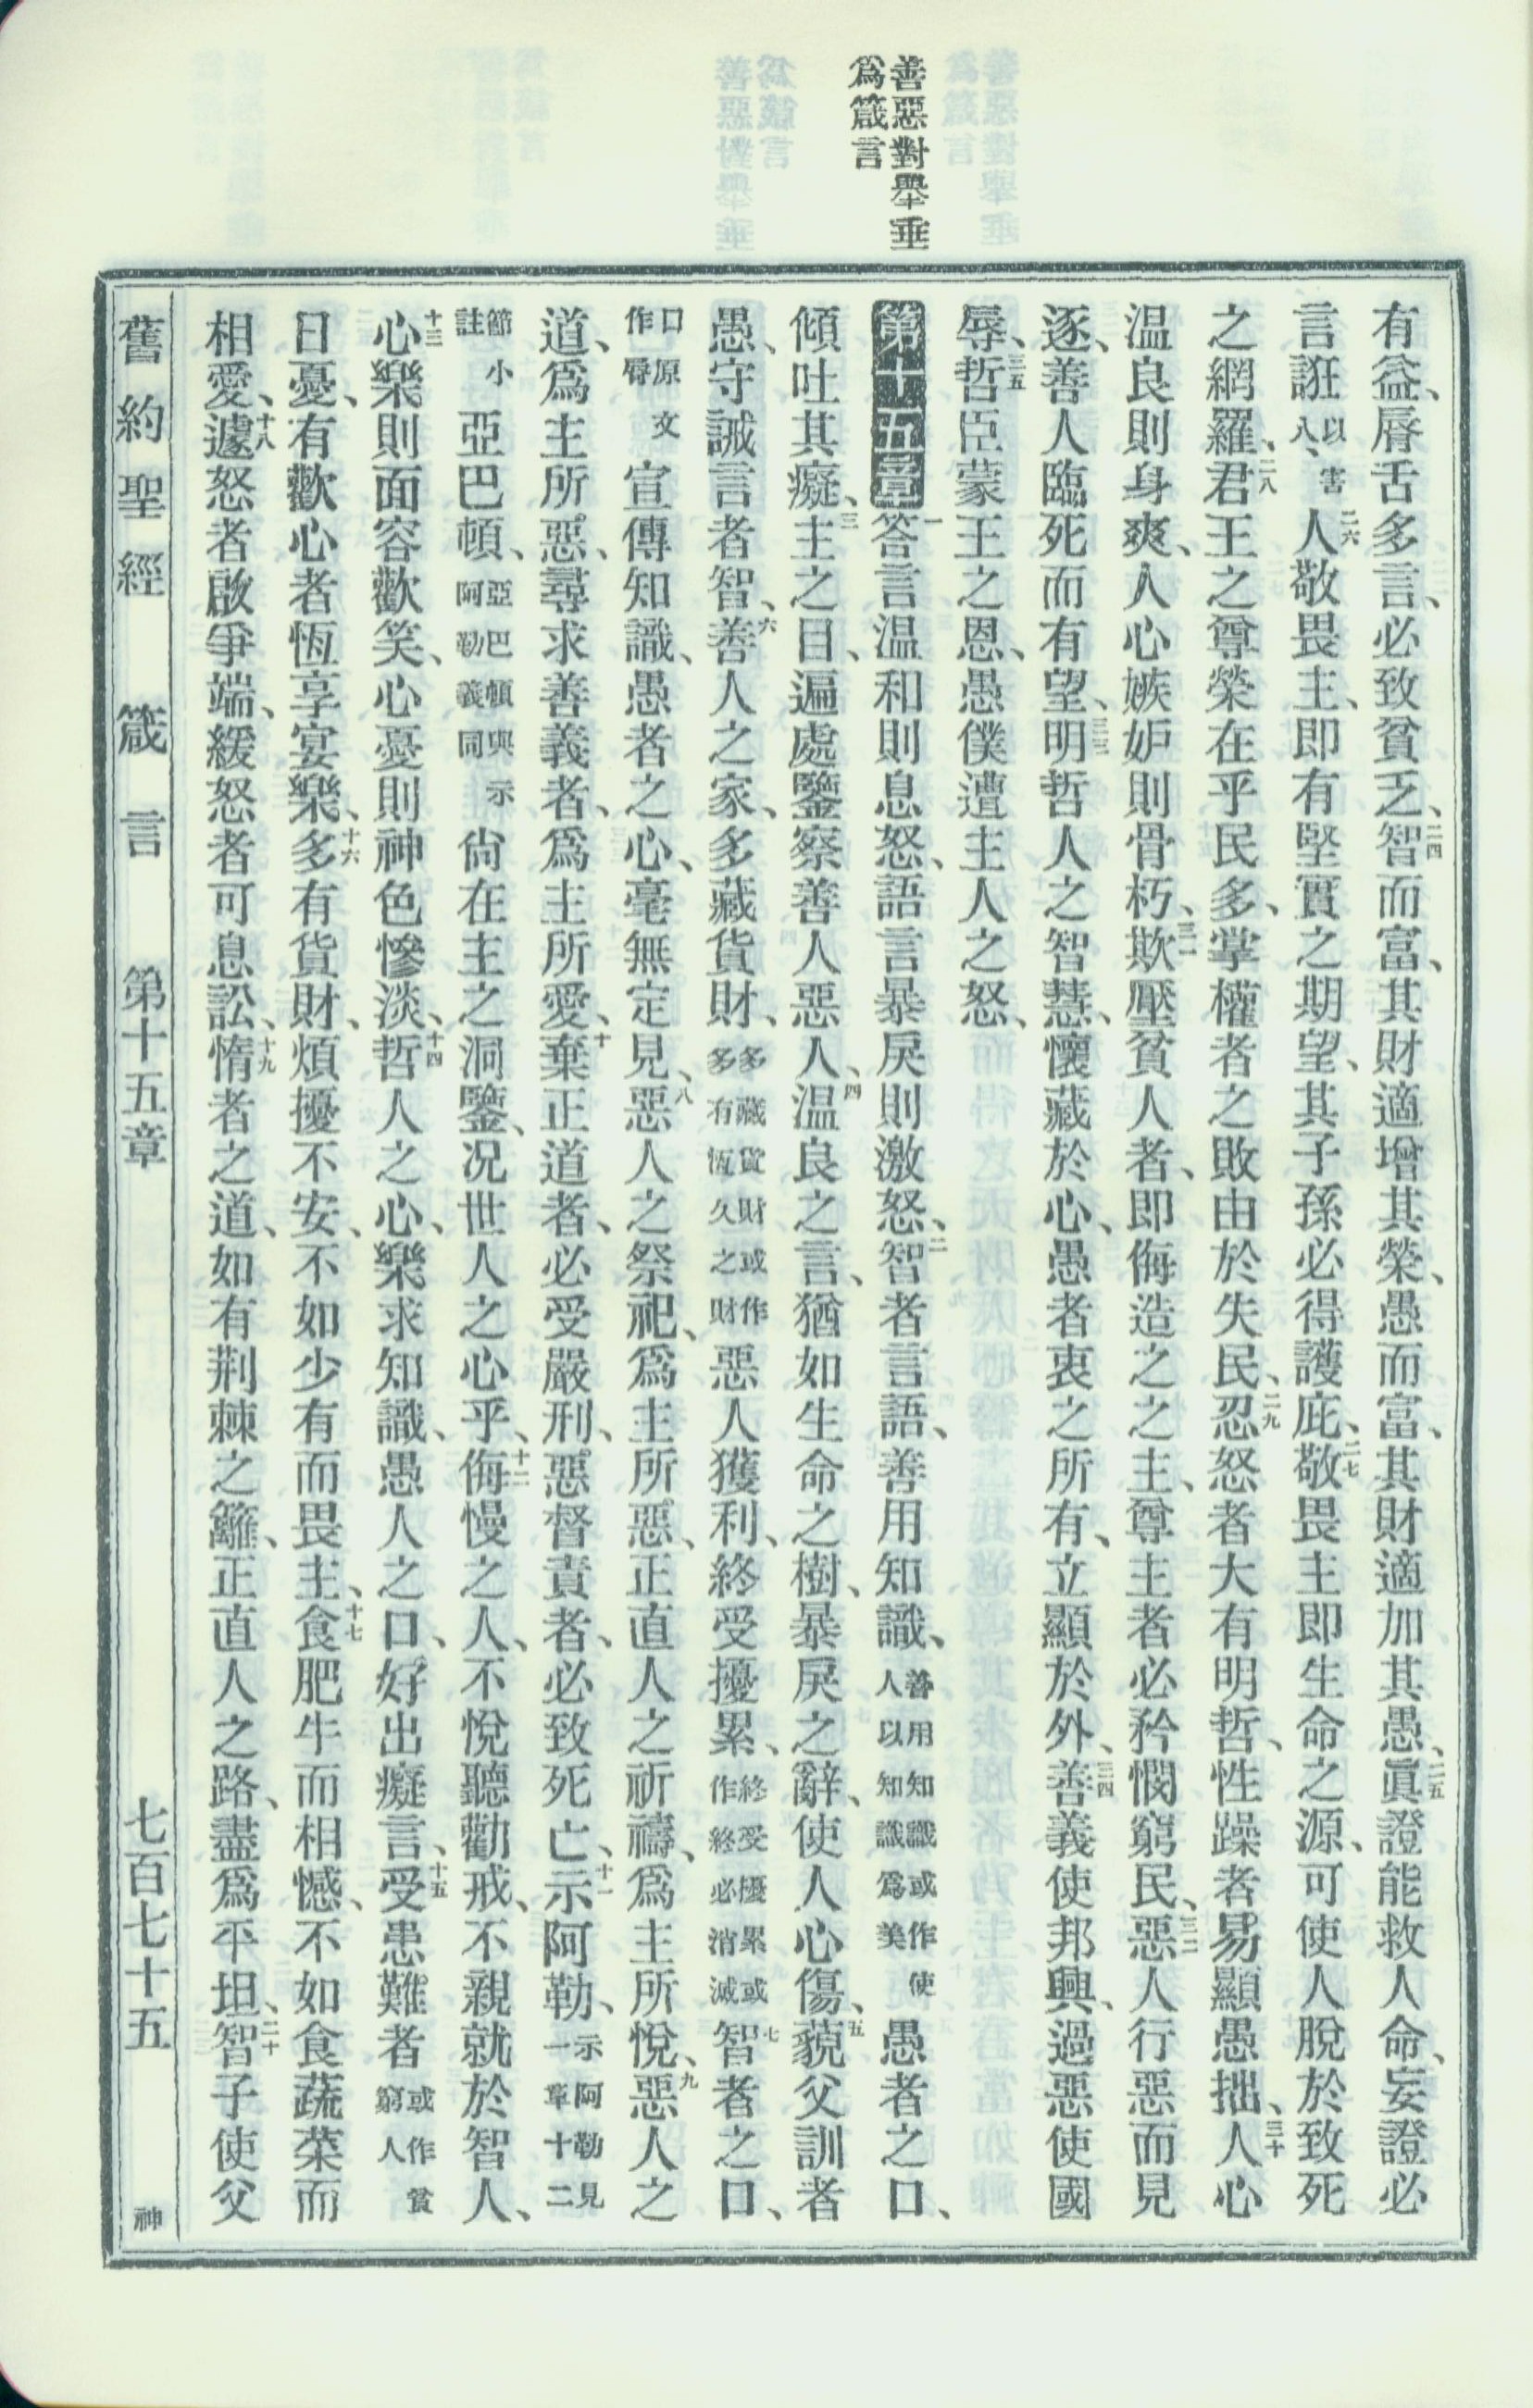 善惡對舉垂
爲箴言
有益、脣舌多言、必致貧乏、二四智而富、其財適增其榮、愚而富、其財適加其愚、二五眞證能救人命、妄證必
言誑以害人、二六人敬畏主、即有堅實之期望、其子孫必得護庇、二七敬畏主即生命之源、可使人脫於致死
之網羅、二八君王之尊榮在乎民多、掌權者之敗由於失民、二九忍怒者大有明哲、性躁者易顯愚拙、三十人心
温良則身爽、人心嫉妒則骨朽、三一欺壓貧人者、即侮造之之主、尊主者必矜憫窮民、三二惡人行惡而見
逐、善人臨死而有望、三三明哲人之智慧、懷藏於心、愚者衷之所有、立顯於外、三四善義使邦興、過惡使國
辱、三五哲臣蒙王之恩、愚僕遭主人之怒、
第十五章一答言温和則息怒、語言暴戾則激怒、二智者言語、善用知識、善用知識或作使人以知識爲美愚者之口、
傾吐其癡、三主之目、遍處鑒察善人惡人、四温良之言、猶如生命之樹、暴戾之辭、使人心傷、五藐父訓者
愚、守誡言者智、六善人之家、多藏貨財、多藏貨財或作多有恆久之財惡人獲利、終受擾累、終受擾累或作終必消滅七智者之口、
口原文作脣宣傳知識、愚者之心、毫無定見、八惡人之祭祀、爲主所惡、正直人之祈禱、爲主所悅、九惡人之
道、爲主所惡、尋求善義者、爲主所愛、十棄正道者、必受嚴刑、惡督責者、必致死亡、十一示阿勒、示阿勒見一章十二
節小註亞巴頓、亞巴頓與示阿勒義同尙在主之洞鑒、况世人之心乎、十二侮慢之人、不悅聽勸戒、不親就於智人、
十三心樂則面容歡笑、心憂則神色慘淡、十四哲人之心、樂求知識、愚人之口、好出癡言、十五受患難者或作貧窮人
日憂、有歡心者恆享宴樂、十六多有貨財、煩擾不安、不如少有而畏主、十七食肥牛而相憾、不如食蔬菜而
相愛、十八遽怒者啟爭端、緩怒者可息訟、十九惰者之道、如有荆棘之籬、正直人之路、盡爲平坦、二十智子使父
舊約聖經 箴言 第十五章 七百七十五 神